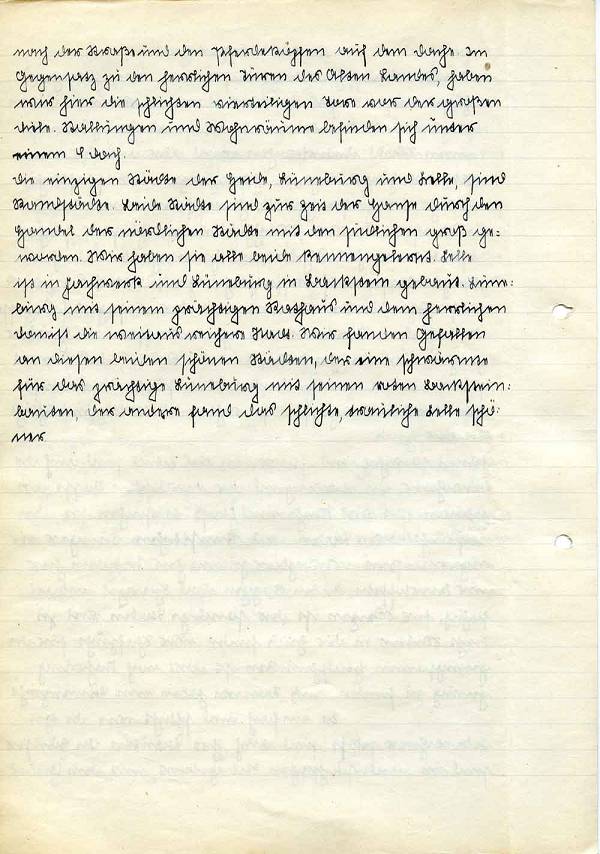 nach der Straße und den Pferdeköpfen auf dem Dache. Im
Gegensatz zu den herrlichen Türen des Alten Landes, haben
wir hier die schlichten vierteiligen Tore vor der großen
Diele. Stallungen und Wohnräume befinden sich unter
einem Dach.
Die einzigen Städte der Heide, Lüneburg und Celle, sind
Randstädte. Beide Städte sind zur Zeit der Hanse durch den
Handel der nördlichen Städte mit den südlichen groß ge-
worden. Wir haben sie alle beide kennengelernt. Celle
ist in Fachwerk und Lüneburg in Backstein gebaut. Lüne-
burg mit seinem prächtigen Rathaus und dem herrlichen
Dom ist die weitaus reichere Stadt. Wir fanden Gefallen
an diesen beiden schönen Städten, der eine schwärmte
für das prächtige Lüneburg mit seinen roten Backstein-
bauten, der andere fand das schlichte, trauliche Celle schö-
ner